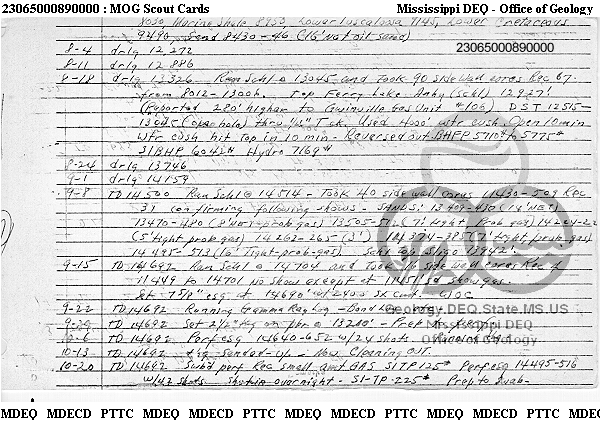 23065000890000 : MOG Scout Cards Mississippi DEQ - Office of Geology
8030, Marine Shale 8953, Lower Tuscaloosa 9145, Lower Cretaceous
9490. Sand 8430-46 (16' Net oil sand)
23065000890000
8-4 drlg 12,272
8-11 drlg 12 886
8-18 drlg 13326 Ran Schl @ 13045 and Took 90 side wall cores Rec 67.
from 8012-13006. Top Ferry Lake Anhy (Schl) 12927'
(Reported 220' higher to Gwinville Gas Unit #106) DST 12515-
13045 (open hole) thru 1/4" Tck. Used 4000' wtr cush. Open 10 min
wtr cush hit top in 10 min - Reversed out BHFP 5710# to 5775#
SIBHP 6042# Hydro 7169#
8-24 drlg 13746
9-1 drlg 14159
9-8 TD 14500 Ran Schl @ 14514 - Took 40 side wall cores 11430-509 Rec
37 confirming following shows - SANDS: (14' NET)
13470-480 (8' Net-prob gas) (7' tight prob gas)
(5' tight-prob gas) 14262-265 (3') (7' tight, prob. gas)
14495-513 (16' Tight-prob-gas)
9-15 TD 14692 Ran Schl @ 14704 and Took side wall cores Rec
11449 to 14701 no show except at sd show gas.
Set 7 5/8" csg at 14690' w/2400 sx cmt. WOC
9-22 TD 14692 Running Gamma Ray Log - Bond
Geology.DEQ.State.MS.US
9-29 TD 14692 Set 2 1/2" tbg on pkr @ 13200' - Prep to perf
Mississippi DEQ
10-6 TD 14692 Perf csg 14640-652 w/24 shots
Office of Geology
10-13 TD 14692 tbg sanded-up - Now Cleaning out
10-20 TD 14692 Swb'd perf Rec small amt GAS SITP 125# Perf csg 14495-516
w/42 shots Shut in overnight - SI-TP 225# Prep to swab-
MDEQ MDECD PTTC MDEQ MDECD PTTC MDEQ MDECD PTTC MDEQ MDECD PTTC MDEQ